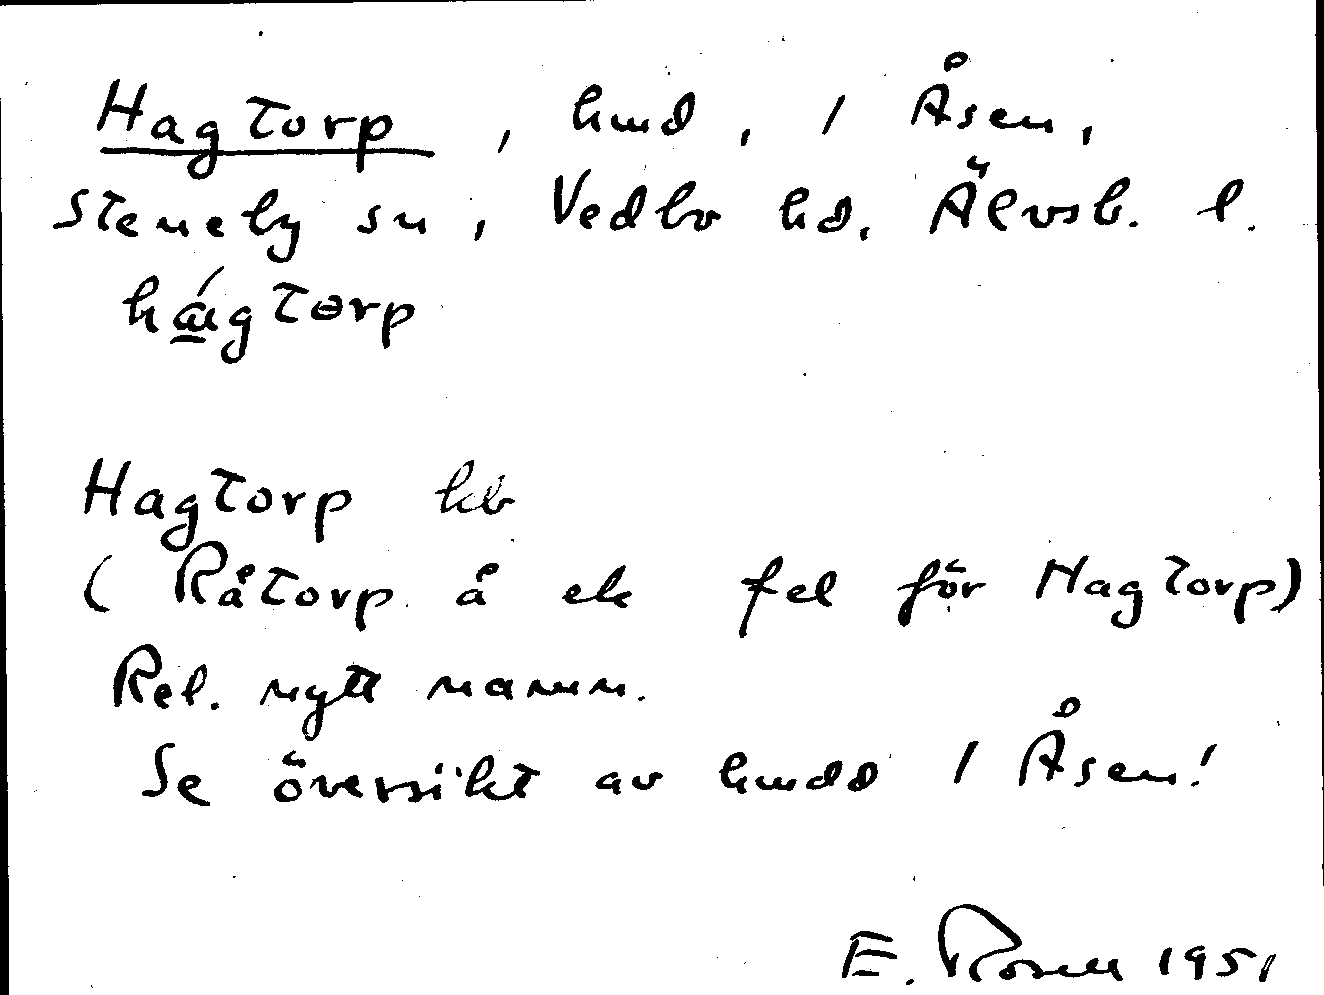 Hagtorp, hmd, / Åsen,
Steneby sn, Vedbo hd. Älvsb. l.
hágtorp
Hagtorp kb
(Råtorp å ek fel för Hagtorp)
Rel. nytt namn.
Se översikt av hmdd / Åsen!
E. Rosell 1951